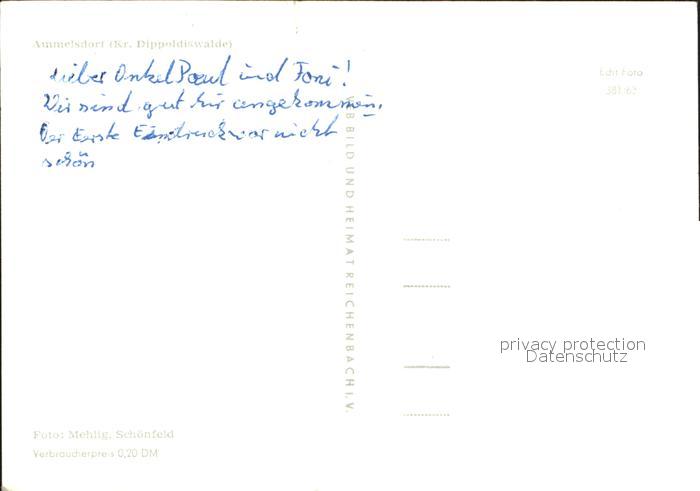 Ammelsdorf (Kr. Dippoldiswalde)
Lieber Onkel Paul und Toni!
Wir sind gut hir angekommen.
Der Erste Eindruck war nicht
schön
Echt Foto
381/63
VEB BILD UND HEIMAT REICHENBACH I. V.
privacy protection
Datenschutz
Foto: Mehlig, Schönfeld
Verbraucherpreis 0,20 DM